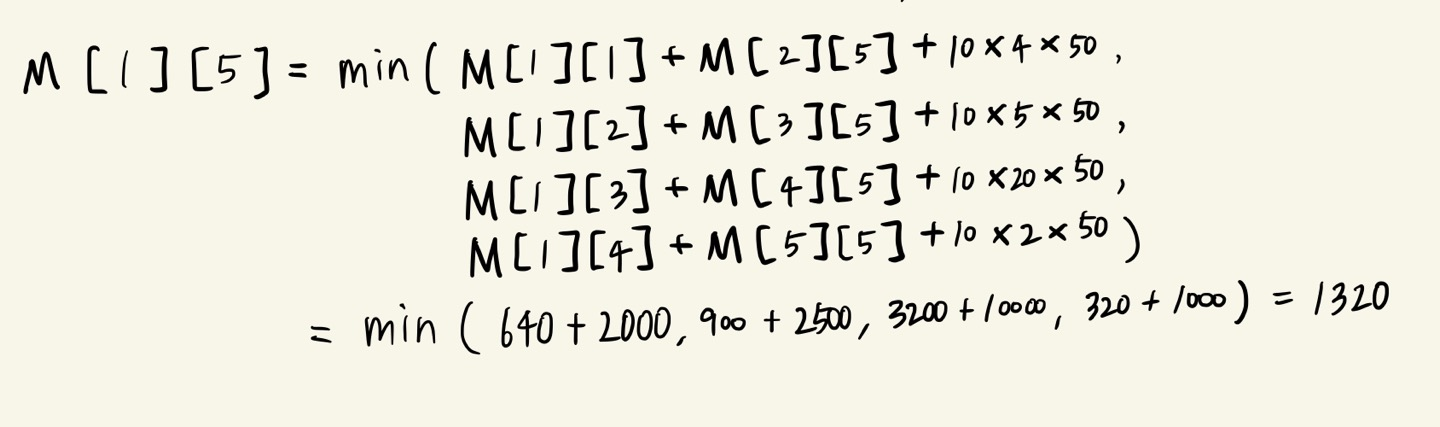 M[1][5] = min( M[1][1] + M[2][5] + 10 × 4 × 50 ,
M[1][2] + M[3][5] + 10 × 5 × 50 ,
M[1][3] + M[4][5] + 10 × 20 × 50 ,
M[1][4] + M[5][5] + 10 × 2 × 50 )
= min ( 640 + 2000, 900 + 2500, 3200 + 10000, 320 + 1000 ) = 1320